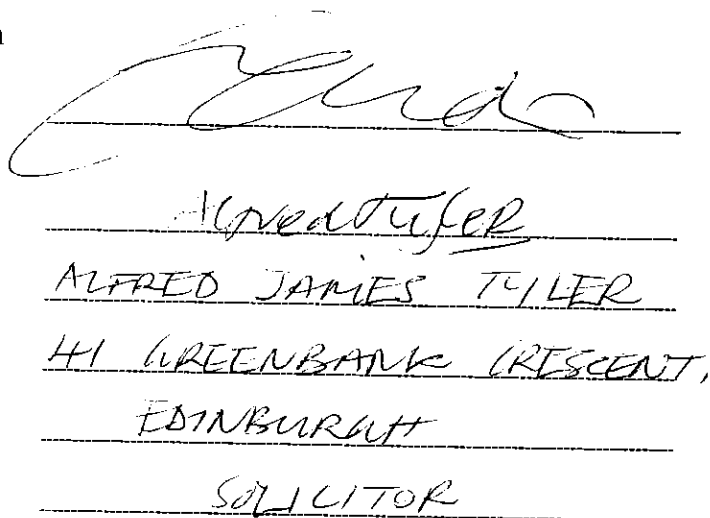 Alfred Tyler
ALFRED JAMES TYLER
41 GREENBANK CRESCENT,
EDINBURGH
SOLICITOR